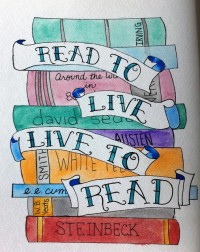 IRVING
READ TO
Around the Wo
in
8
LIVE
david sed
AUSTEN
LIVE TO
SMITH
WHITE TE
READ
e.e. cum
W.B.
Yeats
STEINBECK